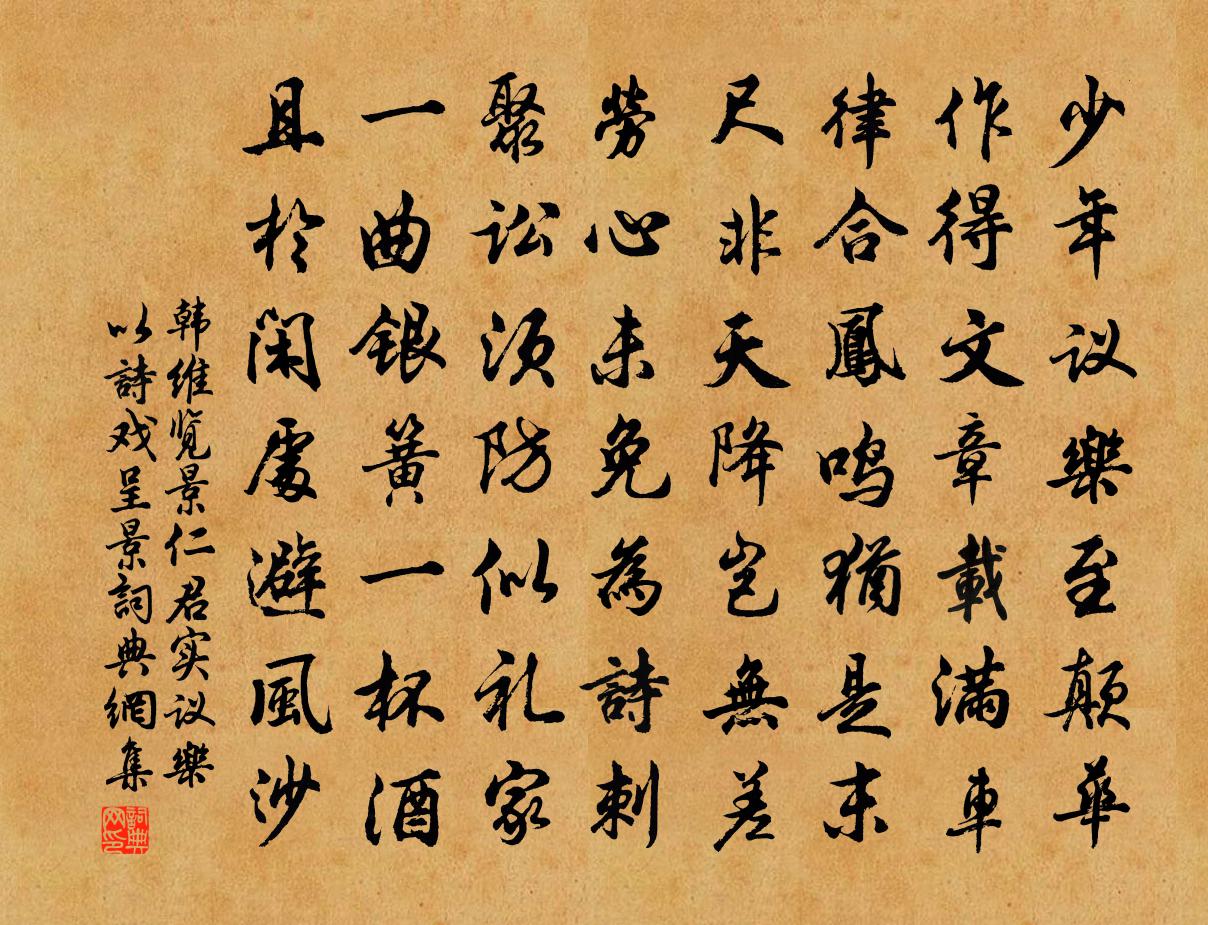 少年议樂至颠華
作得文章載满車
律合鳳鸣猶是末
尺非天降岂無差
勞心未免為詩刺
聚訟须防似礼家
一曲银簧一杯酒
且於闲處避風沙
韩维览景仁君实议樂
以詩戏呈景詞典網集
詞典
网印